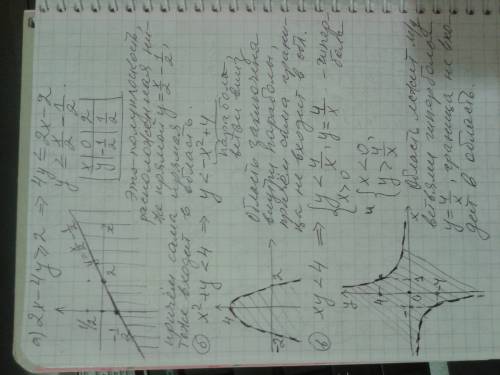 а) 2x-4y≥2 ⇒ 4y≤2x-2
y ≤ x/2 - 1/2
x | 0 | 2
y | -1/2 | 1/2
y=x/2-1/2
Это полуплоскость,
расположенная ни-
же прямой y=x/2-1/2,
причём сама прямая
тоже входит в область.
б) x²+y<4 ⇒ y<-x²+4
парабола,
ветви вниз
4
-2 2
Область заключена
внутри параболы,
причём сама грани-
ца не входит в обл.
в) xy<4 ⇒ { y<4/x, y=4/x - гипер-
x>0 бола
и { x<0,
y>4/x
Область лежит м/у
ветвями гиперболы
y=4/x, граница не вхо-
дит в область.